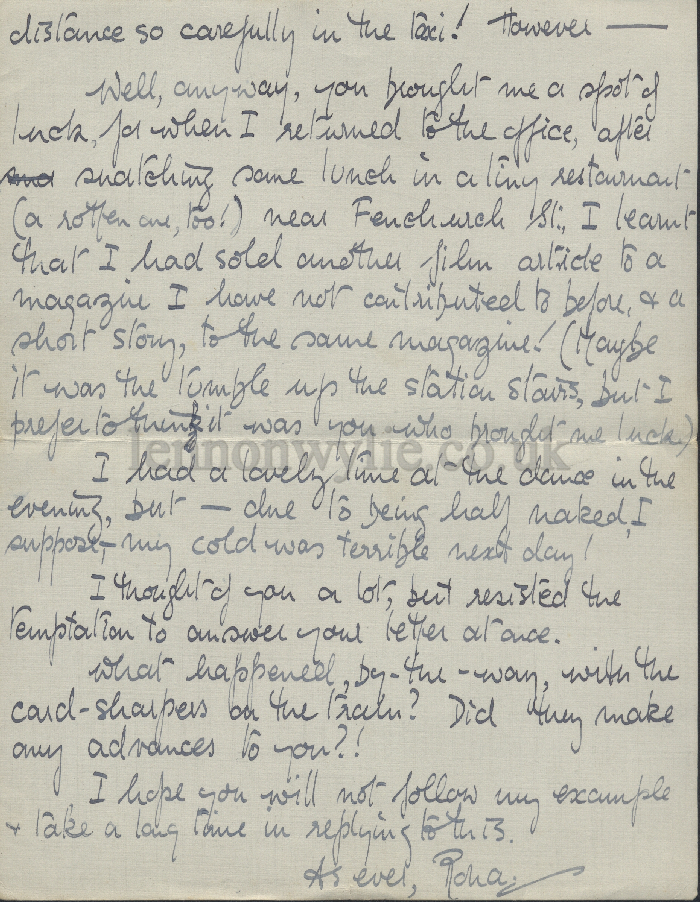 distance so carefully in the taxi! However —
Well, anyway, you brought me a spot of
luck, for when I returned to the office, after
snatching some lunch in a tiny restaurant
(a rotten one, too!) near Fenchurch St., I learnt
that I had sold another film article to a
magazine I have not contributed to before, & a
short story, to the same magazine! (Maybe
it was the tumble up the station stairs, but I
prefer to think it was you who brought me luck.)
lennonwylie.co.uk
I had a lovely time at the dance in the
evening, but — due to being half naked, I
suppose, — my cold was terrible next day!
I thought of you a lot, but resisted the
temptation to answer your letter at once.
What happened, by-the-way, with the
card-sharpers on the train? Did they make
any advances to you?!
I hope you will not follow my example
& take a long time in replying to this.
As ever,